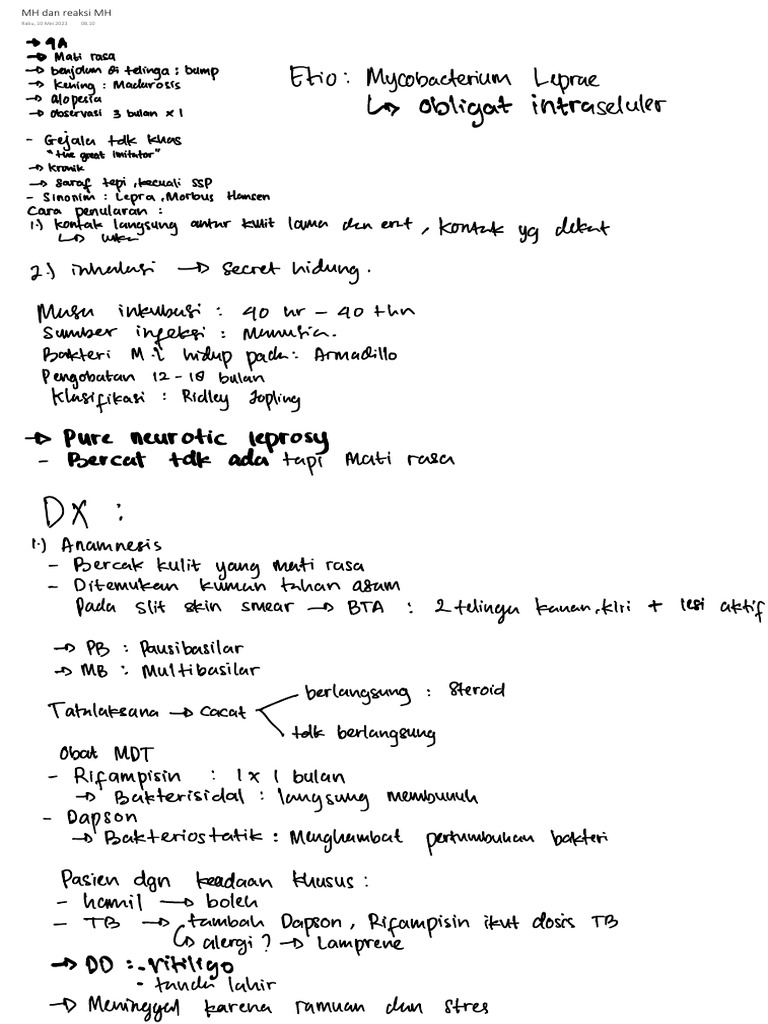 MH dan reaksi MH
Rabu, 10 Mei 2023 08.10
→ 9A
→ Mati rasa
→ benjolan di telinga : bump
→ kening : Madarosis
→ alopesia
→ observasi 3 bulan x 1
Etio : Mycobacterium Leprae
↳ obligat intraseluler
- Gejala tdk khas
"the great imitator"
→ kronik
→ saraf tepi, kecuali SSP
- Sinonim : Lepra, Morbus Hansen
Cara penularan :
1.) kontak langsung antar kulit lama dan erat, kontak yg dekat
↳ luka
2.) inhalasi → secret hidung.
Masa inkubasi : 40 hr - 40 thn
Sumber infeksi : Manusia.
Bakteri M.L hidup pada : Armadillo
Pengobatan 12-18 bulan
Klasifikasi : Ridley Jopling
→ Pure neurotic leprosy
- Bercat tdk ada tapi mati rasa
DX :
1.) Anamnesis
- Bercak kulit yang mati rasa
- Ditemukan kuman tahan asam
pada slit skin smear → BTA : 2 telinga kanan, kiri + lesi aktif
→ PB : Pausibasilar
→ MB : Multibasilar
Tatalaksana → cacat
berlangsung : Steroid
tdk berlangsung
Obat MDT
- Rifampisin : 1 x 1 bulan
→ Bakterisidal : langsung membunuh
- Dapson
→ Bakteriostatik : Menghambat pertumbuhan bakteri
Pasien dgn keadaan khusus :
- hamil → boleh
- TB → tambah Dapson, Rifampisin ikut dosis TB
↳ alergi ? → Lamprene
→ DD : - Vitiligo
- tanda lahir
→ Meninggal karena ramuan dan stres